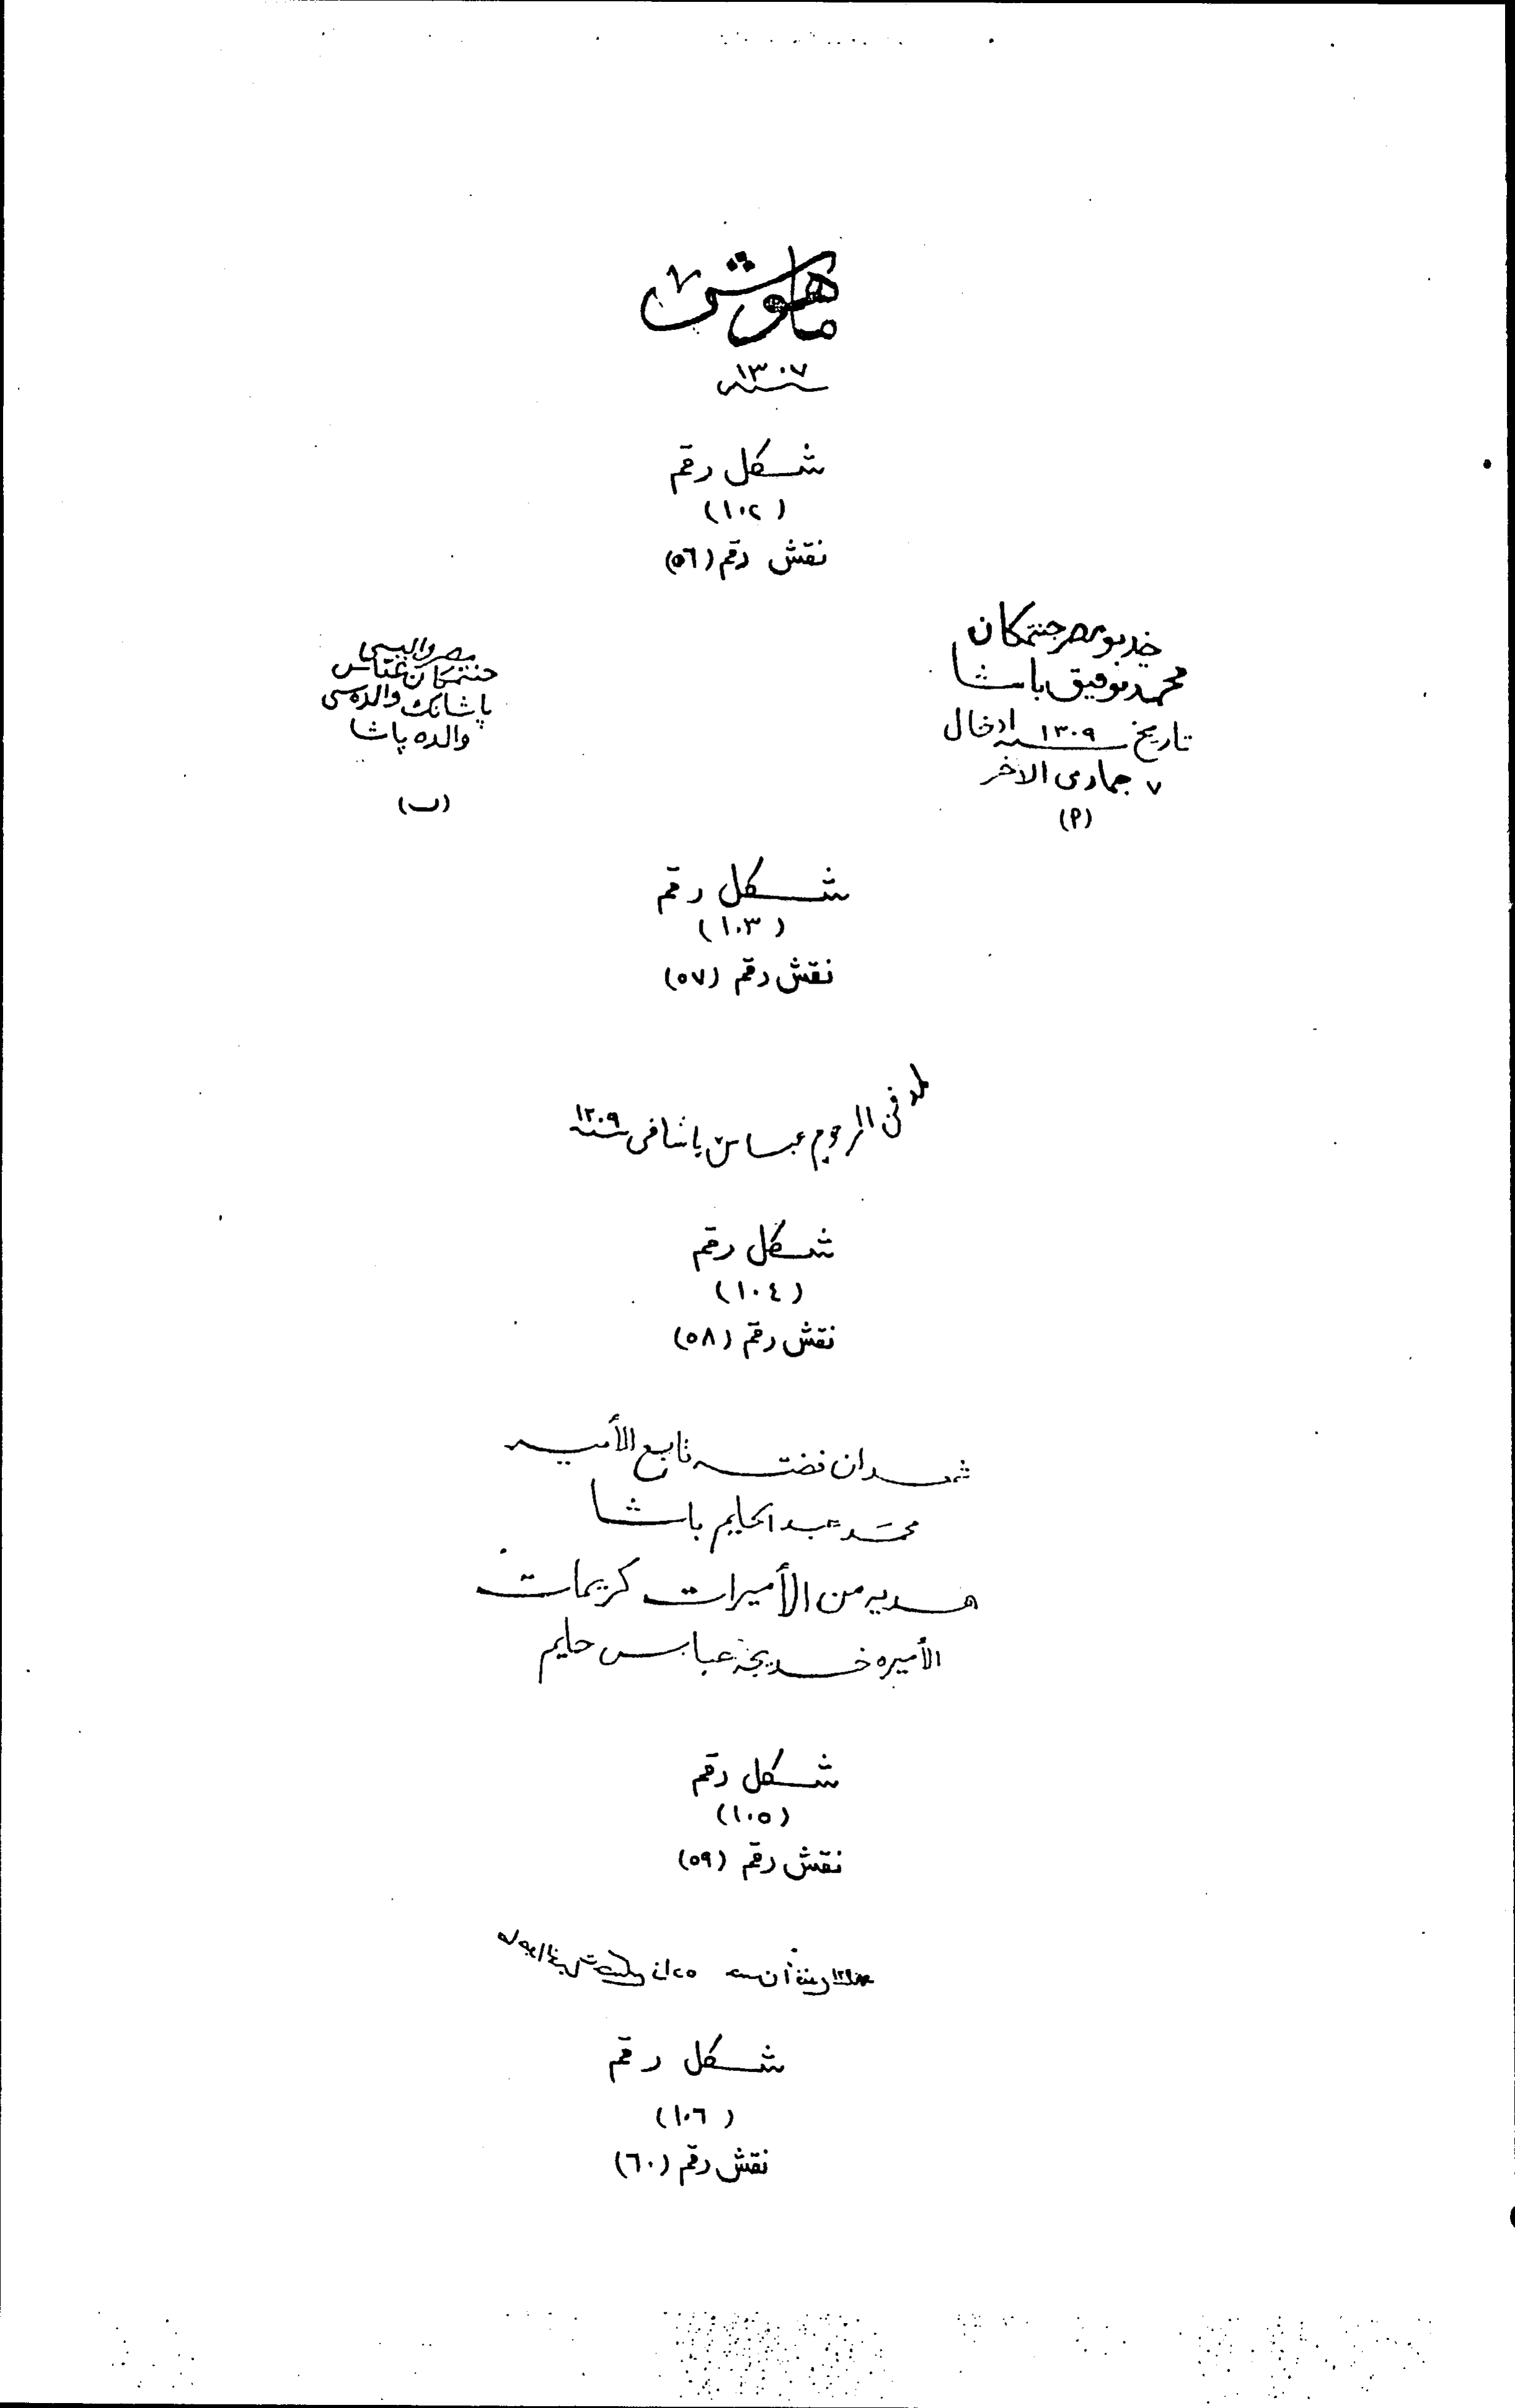 ماهوش
سنة ١٣٠٧
شكل رقم
(١٠٢)
نقش رقم (٥٦)
خديو مصر جنتمكان
محمد توفيق باشا
تاريخ ادخال سنه ١٣٠٩
٧ جمادى الآخر
(أ)
مصر واليسى
جنتمكان عباس
پاشانك والده سى
والده پاشا
(ب)
شكل رقم
(١٠٣)
نقش رقم (٥٧)
لمدفن المرحوم عباس باشا فى سنة ١٢٠٩
شكل رقم
(١٠٤)
نقش رقم (٥٨)
شمعدان فضة تابع الأمير
محمد عبد الحليم باشا
هديه من الأميرات كريمات
الأميره خديجة عباس حليم
شكل رقم
(١٠٥)
نقش رقم (٥٩)
شكل رقم
(١٠٦)
نقش رقم (٦٠)